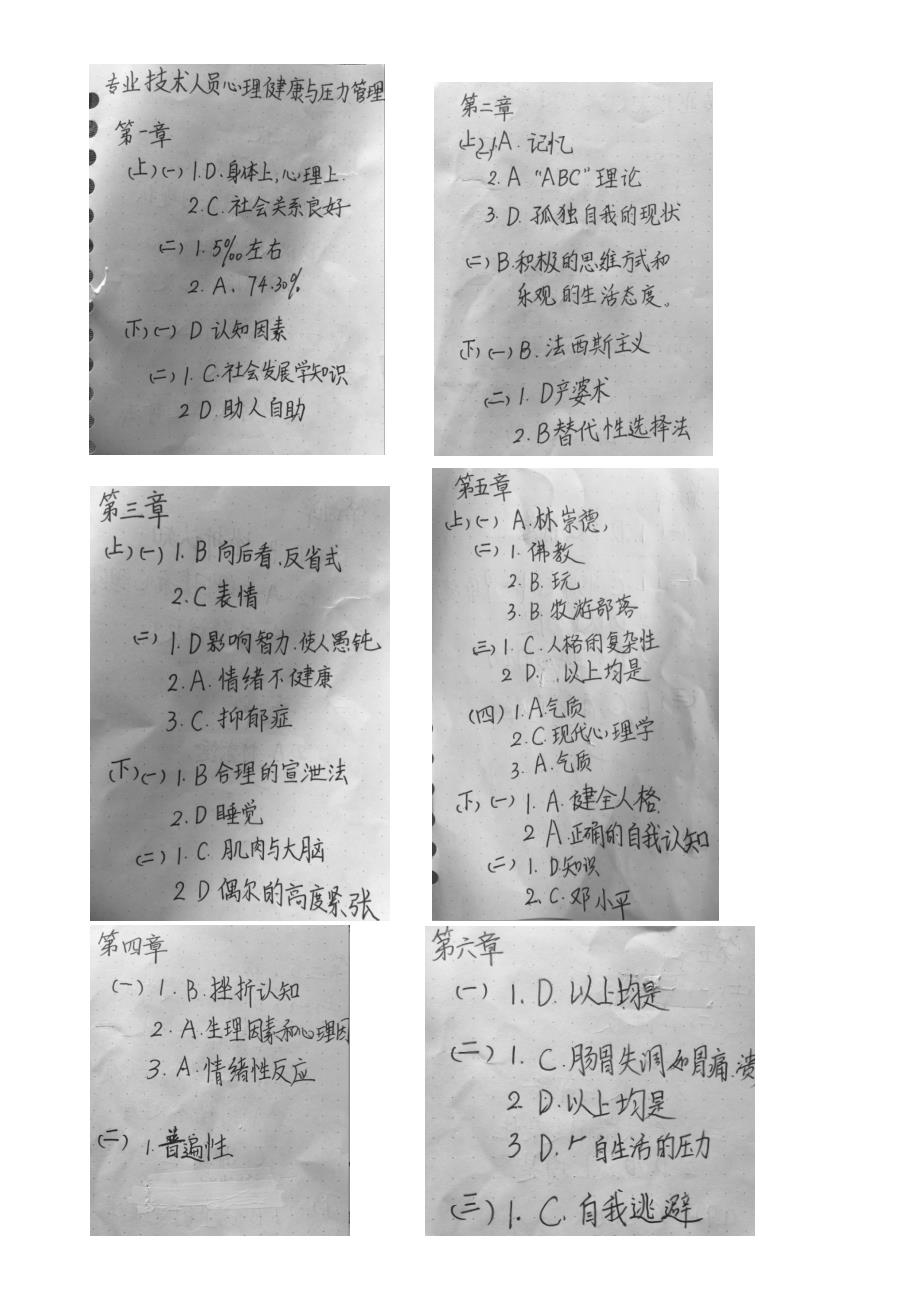 专业技术人员心理健康与压力管理
第一章
(上)(一) 1.D.身体上,心理上.
2.C.社会关系良好
(二) 1.5‰左右
2.A. 74.30%
(下)(一) D 认知因素
(二) 1. C.社会发展学知识
2 D.助人自助
第二章
(上)(一)1.A.记忆
2.A "ABC"理论
3.D.孤独自我的现状
(二)B.积极的思维方式和
乐观的生活态度。
(下)(一)B.法西斯主义
(二)1. D产婆术
2.B替代性选择法
第三章
(上)(一) 1.B 向后看.反省式
2.C 表情
(二) 1.D影响智力.使人愚钝
2.A.情绪不健康
3.C.抑郁症
(下)(一)1.B合理的宣泄法
2.D睡觉
(二)1.C.肌肉与大脑
2 D偶尔的高度紧张
第五章
(上)(一) A.林崇德,
(二) 1.佛教
2.B.玩
3.B.牧游部落
(三)1.C.人格的复杂性
2 D. 以上均是
(四)1.A.气质
2.C.现代心理学
3. A.气质
(下)(一) 1. A.健全人格
2 A.正确的自我认知
(二) 1. D.知识
2.C.邓小平
第四章
(一) 1. B.挫折认知
2. A.生理因素和心理因
3. A.情绪性反应
(二) 1.普遍性
第六章
(一) 1.D.以上均是
(二) 1. C.肠胃失调如胃痛.溃
2 D.以上均是
3 D. 自生活的压力
(三) 1. C.自我逃避